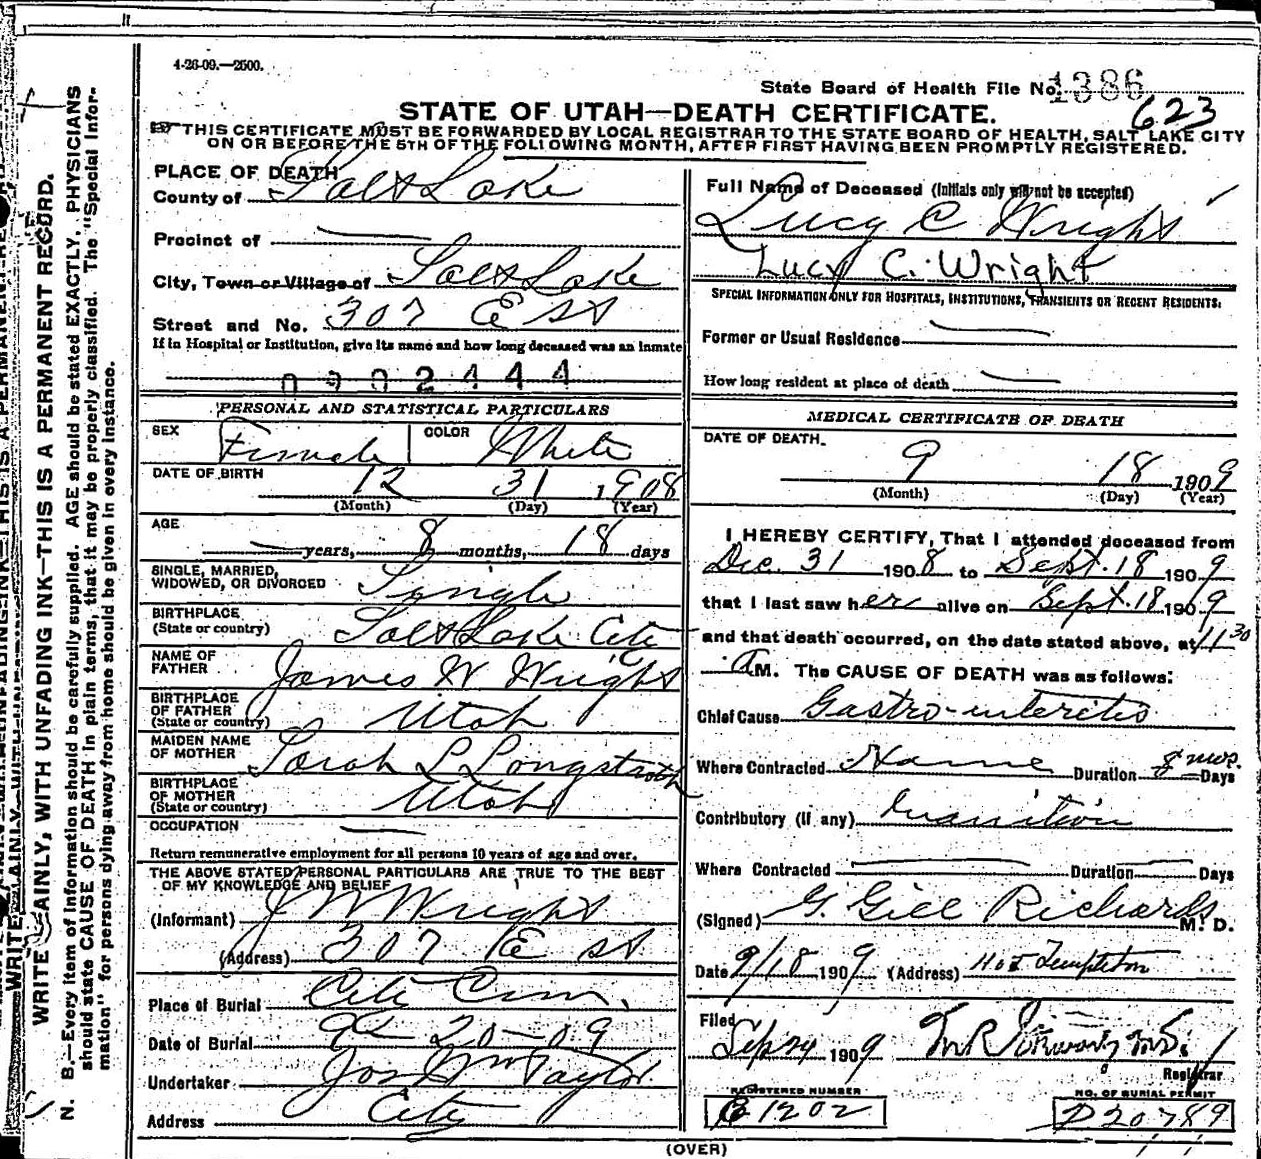 4-26-09.—2500.
State Board of Health File No. 1386
623
STATE OF UTAH—DEATH CERTIFICATE.
THIS CERTIFICATE MUST BE FORWARDED BY LOCAL REGISTRAR TO THE STATE BOARD OF HEALTH, SALT LAKE CITY
ON OR BEFORE THE 5TH OF THE FOLLOWING MONTH, AFTER FIRST HAVING BEEN PROMPTLY REGISTERED.
PLACE OF DEATH
County of Salt Lake
Precinct of —
City, Town or Village of Salt Lake
Street and No. 307 E St
If in Hospital or Institution, give its name and how long deceased was an inmate
0902444
PERSONAL AND STATISTICAL PARTICULARS
SEX Female COLOR White
DATE OF BIRTH 12 31 1908
(Month) (Day) (Year)
AGE — years, 8 months, 18 days
SINGLE, MARRIED,
WIDOWED, OR DIVORCED Single
BIRTHPLACE
(State or country) Salt Lake City
NAME OF
FATHER James W Wright
BIRTHPLACE
OF FATHER
(State or country) Utah
MAIDEN NAME
OF MOTHER Sarah L Longstroth
BIRTHPLACE
OF MOTHER
(State or country) Utah
OCCUPATION —
Return remunerative employment for all persons 10 years of age and over.
THE ABOVE STATED PERSONAL PARTICULARS ARE TRUE TO THE BEST
OF MY KNOWLEDGE AND BELIEF
(Informant) J W Wright
(Address) 307 E St
Place of Burial City Cem.
Date of Burial 9-20-09
Undertaker Jos Wm Taylor
Address City
Full Name of Deceased (Initials only will not be accepted)
Lucy C Wright
Lucy C. Wright
SPECIAL INFORMATION ONLY FOR HOSPITALS, INSTITUTIONS, TRANSIENTS OR RECENT RESIDENTS.
Former or Usual Residence —
How long resident at place of death —
MEDICAL CERTIFICATE OF DEATH
DATE OF DEATH.
9 18 1909
(Month) (Day) (Year)
I HEREBY CERTIFY, That I attended deceased from
Dec. 31 1908 to Sept. 18 1909
that I last saw her alive on Sept. 18 1909
and that death occurred, on the date stated above, at 11 30
A M. The CAUSE OF DEATH was as follows:
Chief Cause Gastro-interitis
Where Contracted Home Duration 8 mos. Days
Contributory (if any) Inanition
Where Contracted — Duration — Days
(Signed) G. Gill Richards M. D.
Date 9/18 1909 (Address) 405 Templeton
Filed
Sep 24 1909 M.D.
Registrar
REGISTERED NUMBER
C 1202
NO. OF BURIAL PERMIT
D20789
(OVER)
WRITE PLAINLY, WITH UNFADING INK—THIS IS A PERMANENT RECORD.
N. B.—Every item of information should be carefully supplied. AGE should be stated EXACTLY, PHYSICIANS
should state CAUSE OF DEATH in plain terms, that it may be properly classified. The "Special Infor-
mation" for persons dying away from home should be given in every instance.